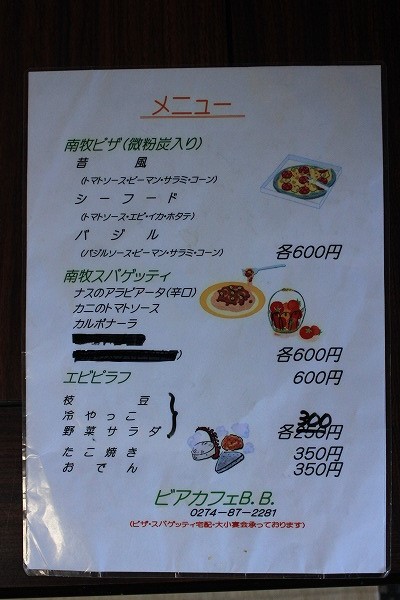 メニュー
南牧ピザ(微粉炭入り)
昔風
(トマトソース・ピーマン・サラミ・コーン)
シーフード
(トマトソース・エビ・イカ・ホタテ)
バジル
(バジルソース・ピーマン・サラミ・コーン) 各600円
南牧スパゲッティ
ナスのアラビアータ(辛口)
カニのトマトソース
カルボナーラ
) 各600円
エビピラフ 600円
枝豆
冷やっこ
野菜サラダ 各250円 300
たこ焼き 350円
おでん 350円
ビアカフェB.B.
0274-87-2281
(ピザ・スパゲッティ宅配・大小宴会承っております)